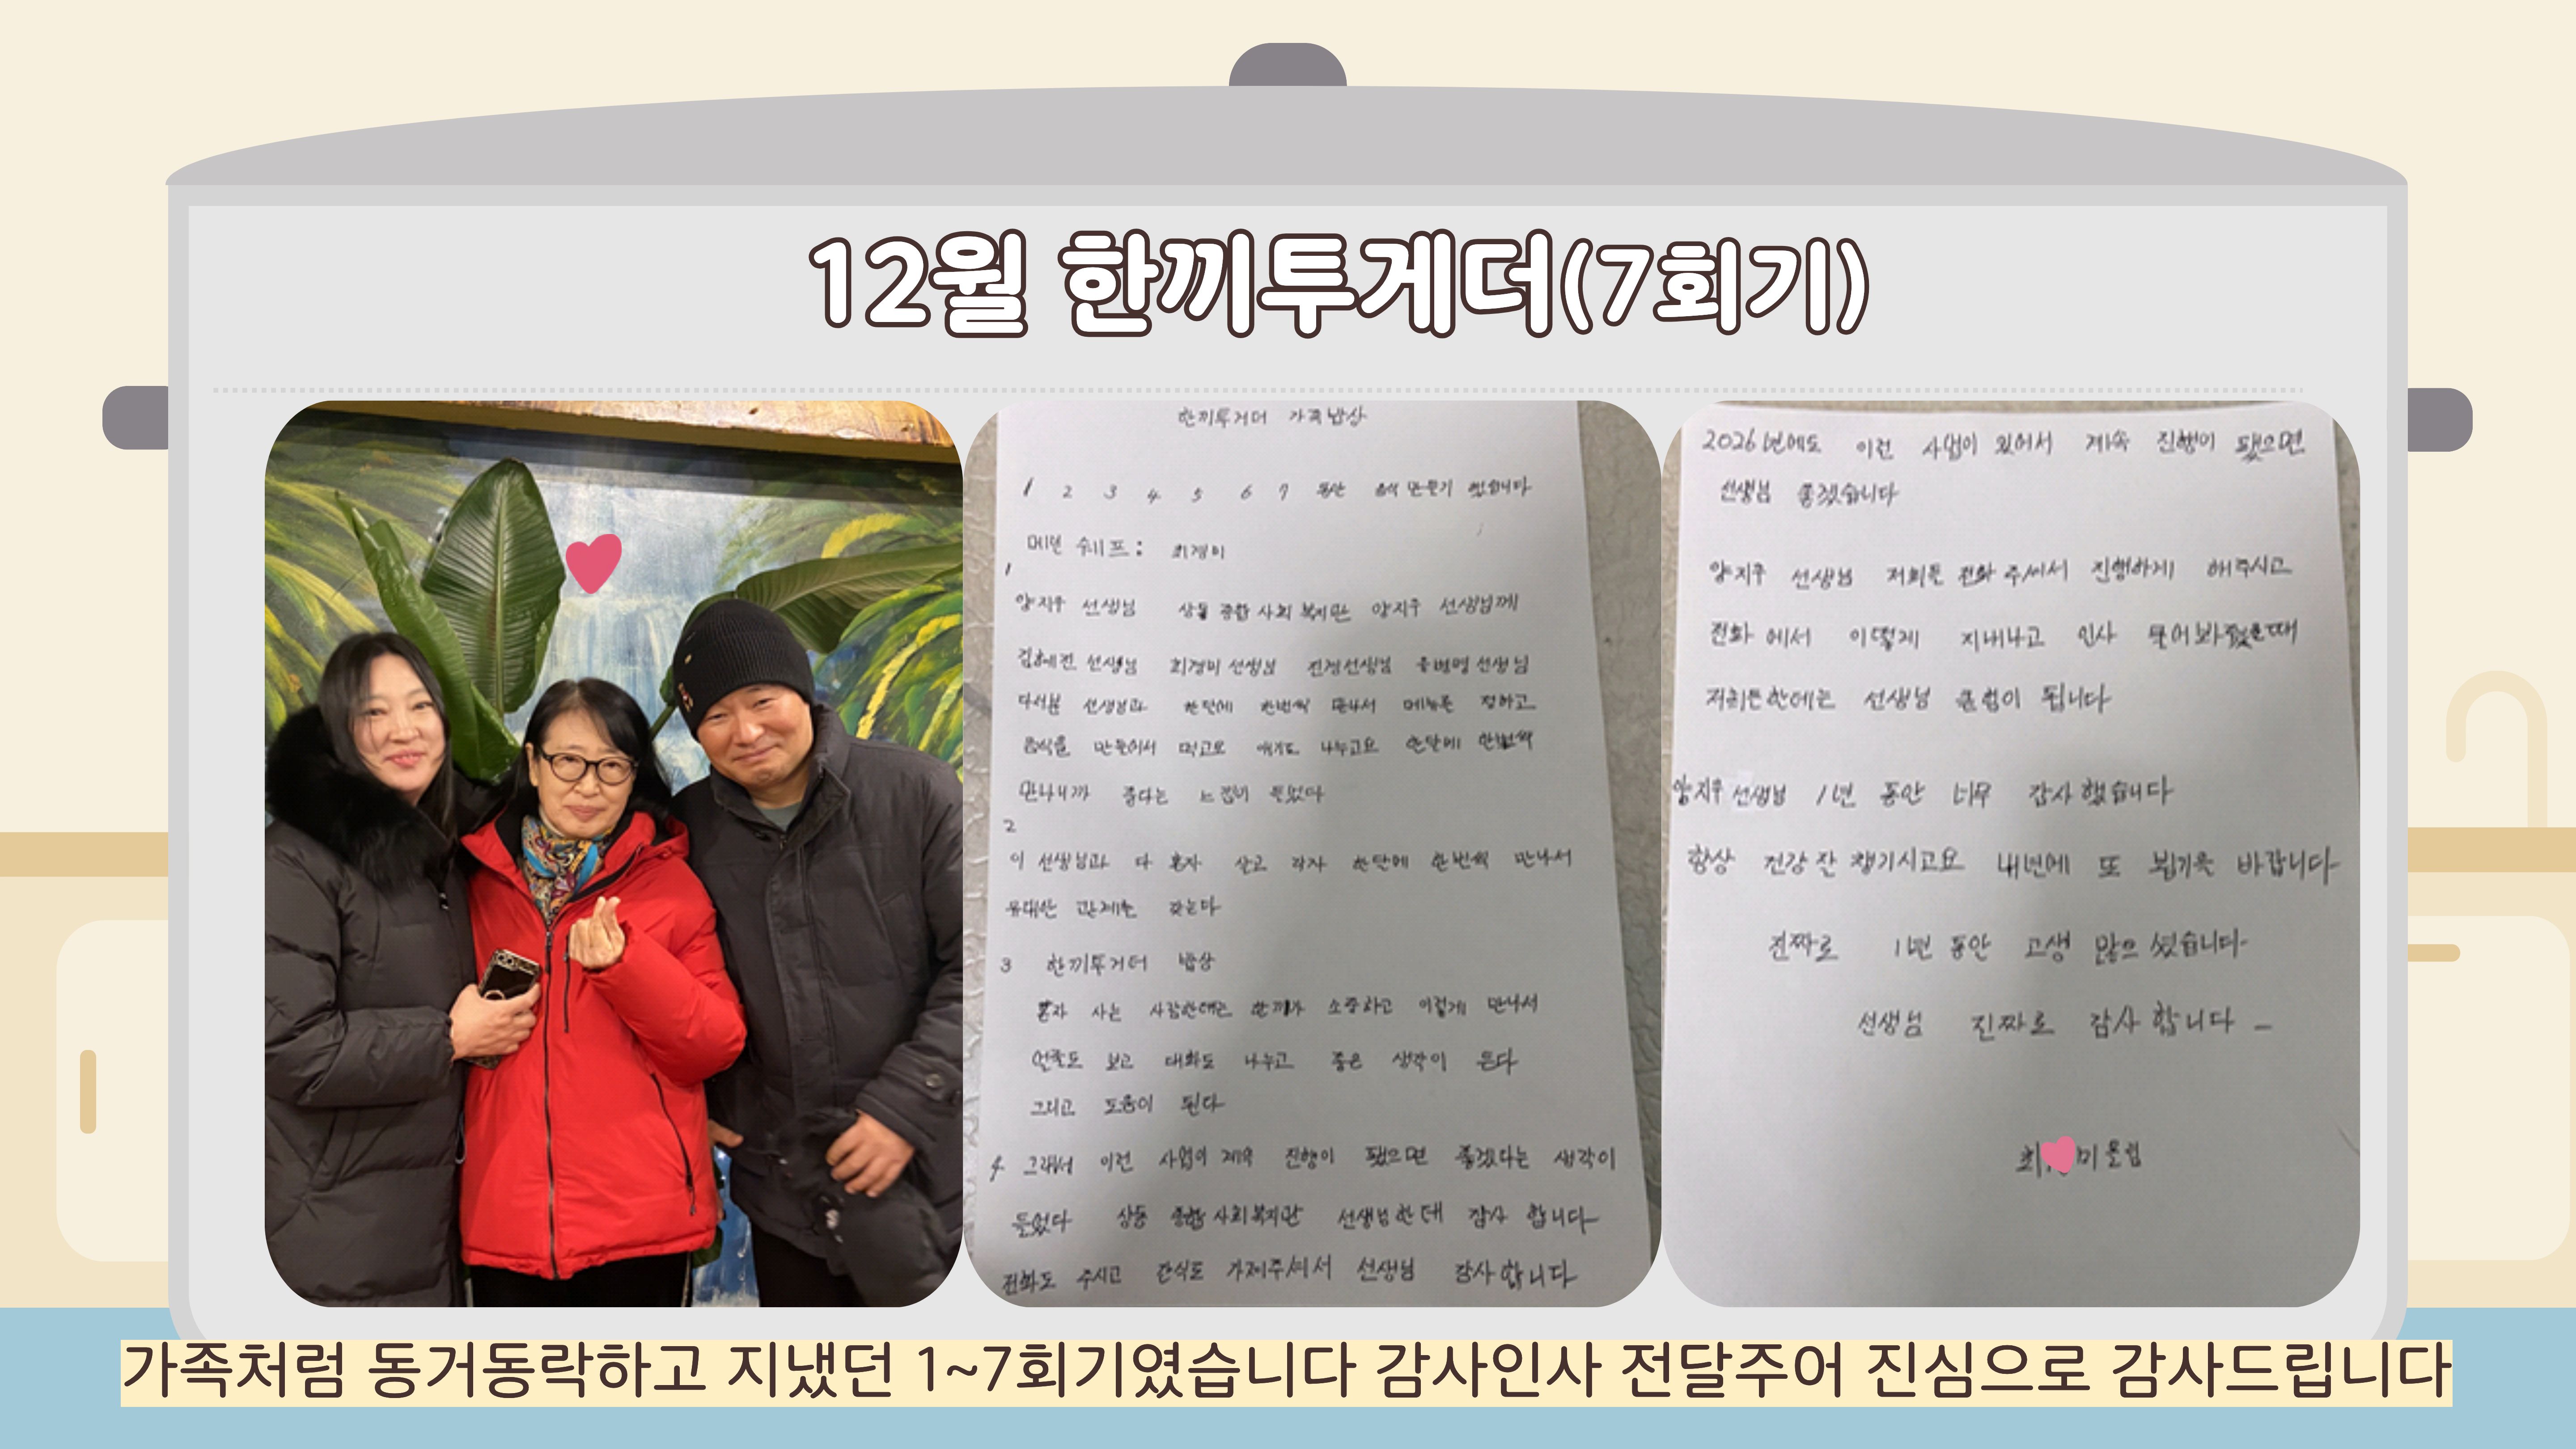 12월 한끼투게더(7회기)
한끼투게더 가족밥상
1 2 3 4 5 6 7 동안 음식 만들기 했습니다
메인 쉐프 : 최경미
1
양지우 선생님 상동 종합 사회 복지관 양지우 선생님께
선생님 최경미 선생님 선생님 선생님
다섯분 선생님과 한달에 한번씩 만나서 메뉴를 정하고
음식을 만들어서 먹고로 얘기도 나누고요 한달에 한번씩
만나니까 좋다는 느낌이 들었다
2
이 선생님과 다 혼자 살고 각자 한달에 한번씩 만나서
유대한 관계를 갖는다
3 한끼투게더 밥상
혼자 사는 사람한테는 한끼가 소중하고 이렇게 만나서
얼굴도 보고 대화도 나누고 좋은 생각이 든다
그리고 도움이 된다
4 그래서 이런 사업이 계속 진행이 됐으면 좋겠다는 생각이
들었다 상동 종합 사회복지관 선생님한테 감사 합니다
전화도 주시고 간식도 가져주셔서 선생님 감사합니다
2026년에도 이런 사업이 있어서 계속 진행이 됐으면
선생님 좋겠습니다
양지우 선생님 저희를 전화 주셔서 진행하게 해주시고
전화 에서 이떻게 지내냐고 인사 물어봐
저희들한에는 선생님 큰 힘이 됩니다
양지우 선생님 1년 동안 너무 감사했습니다
항상 건강 잘 챙기시고요 내년에 또 뵙기를 바랍니다
진짜로 1년 동안 고생 많으셨습니다
선생님 진짜로 감사 합니다
최 미 올림
가족처럼 동거동락하고 지냈던 1~7회기였습니다 감사인사 전달주어 진심으로 감사드립니다